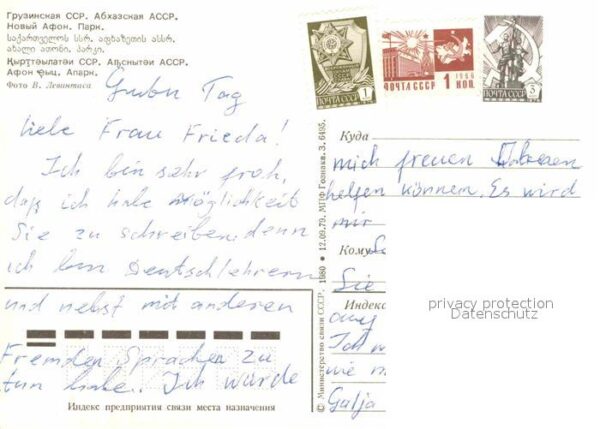 Грузинская ССР. Абхазская АССР.
Новый Афон. Парк.
საქართველოს სსრ. აფხაზეთის ასსრ.
ახალი ათონი. პარკი.
Қырҭтәылатәи ССР. Аҧснытәи АССР.
Афон ҿыц. Апарк.
Фото В. Левантаса
Guten Tag
liebe Frau Frieda!
Ich bin sehr froh,
daß ich habe Möglichkeit
Sie zu schreiben, denn
ich bin Deutschlehrerin
und nebst mit anderen
Fremden Sprachen zu
tun habe. Ich würde
Индекс предприятия связи места назначения
© Министерство связи СССР. 1980 • 12.09.79. МПФ Гознака. З. 6495.
ПОЧТА СССР 1
ПОЧТА СССР 1 КОП. 1966
ПОЧТА СССР 3
Куда
mich freuen
helfen können. Es wird
mir
Кому
Sie
Индекс
Ich
Galja
privacy protection
Datenschutz